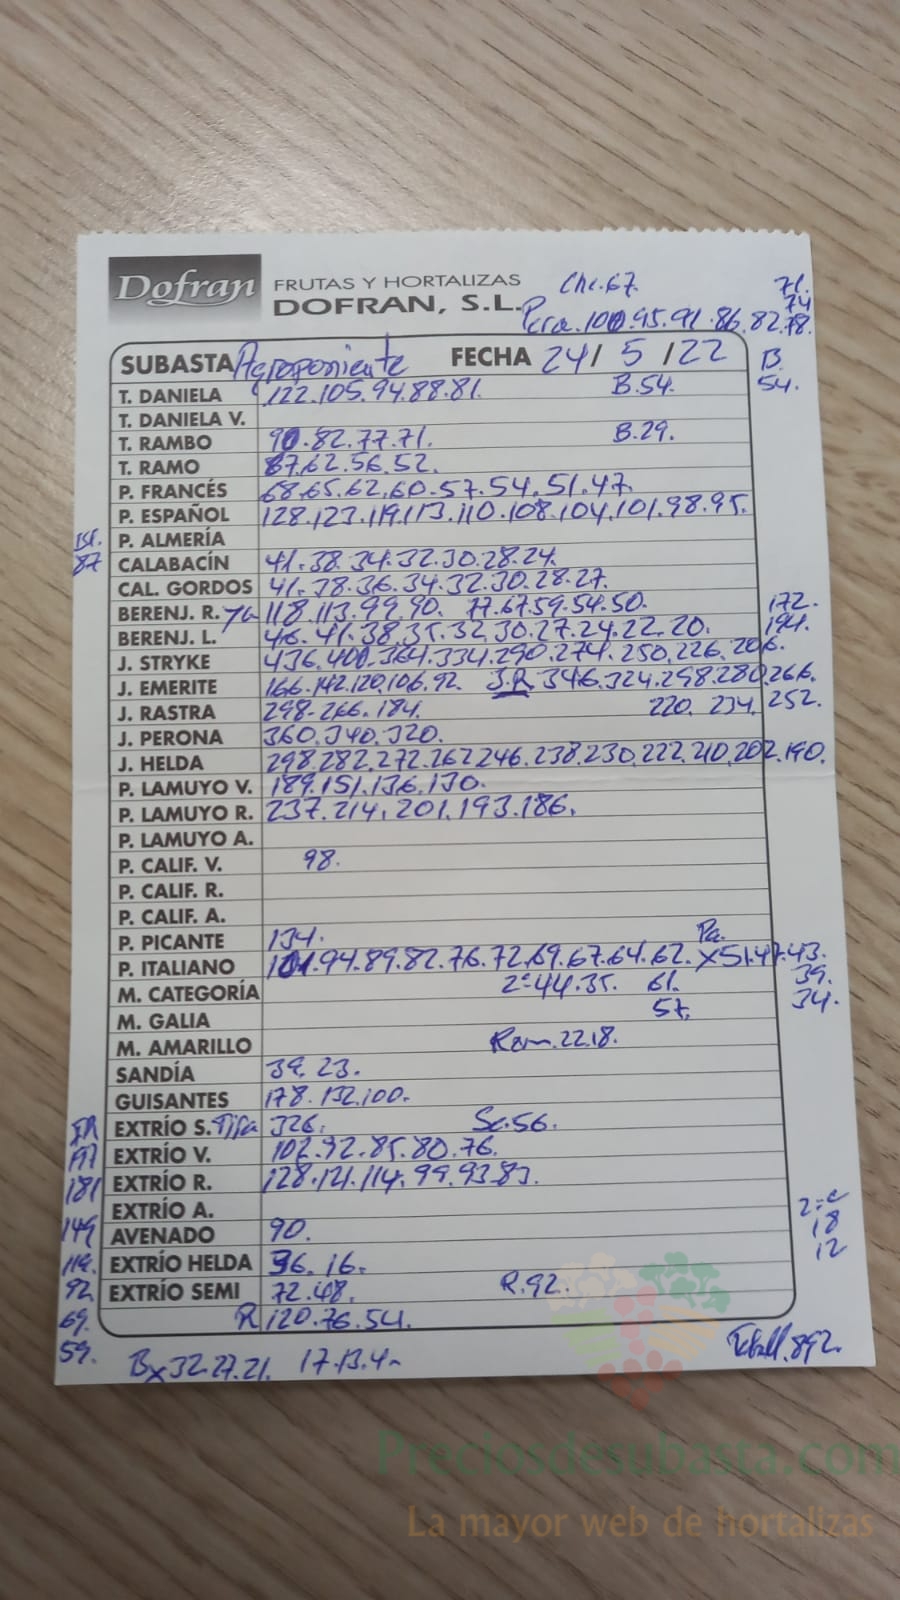 Dofran FRUTAS Y HORTALIZAS
DOFRAN, S.L.
Chc.67. 71.
74
Pera.100.95.91.86.82.78.
SUBASTA Agroponiente FECHA 24/ 5 /22 B.
54.
T. DANIELA 122.105.94.88.81. B.54.
T. DANIELA V.
T. RAMBO 90.82.77.71. B.29.
T. RAMO 67.62.56.52.
P. FRANCÉS 68.65.62.60.57.54.51.47.
P. ESPAÑOL 128.123.119.113.110.108.104.101.98.95.
P. ALMERÍA
87 CALABACÍN 41.38.34.32.30.28.24.
CAL. GORDOS 41.38.36.34.32.30.28.27.
BERENJ. R. 118.113.99.90. 77.67.59.54.50. 172.
BERENJ. L. 46.41.38.35.32.30.27.24.22.20. 194.
J. STRYKE 436.400.364.334.290.274.250.226.206.
J. EMERITE 166.142.120.106.92. J.R 346.324.298.280.266.
J. RASTRA 298.266.184. 220. 234. 252.
J. PERONA 360.340.320.
J. HELDA 298.282.272.262.246.238.230.222.210.202.190.
P. LAMUYO V. 189.151.136.130.
P. LAMUYO R. 237.214.201.193.186.
P. LAMUYO A.
P. CALIF. V. 98.
P. CALIF. R.
P. CALIF. A.
P. PICANTE 134. Pa.
P. ITALIANO 101.94.89.82.76.72.69.67.64.62. X51.47.43.
M. CATEGORÍA 2ª=44.35. 61. 39.
M. GALIA 57. 34.
M. AMARILLO Ram.22.18.
SANDÍA 39.23.
GUISANTES 178.132.100.
EXTRÍO S. 326. Sc.56.
EXTRÍO V. 102.92.85.80.76.
181 EXTRÍO R. 128.121.114.99.93.83.
EXTRÍO A.
149 AVENADO 90. 18
119. EXTRÍO HELDA 36.16. 12
92 EXTRÍO SEMI 72.48. R.92.
69. R 120.76.54.
59. Bx32.27.21. 17.13.4-
892.
Preciosdesubasta.com
La mayor web de hortalizas